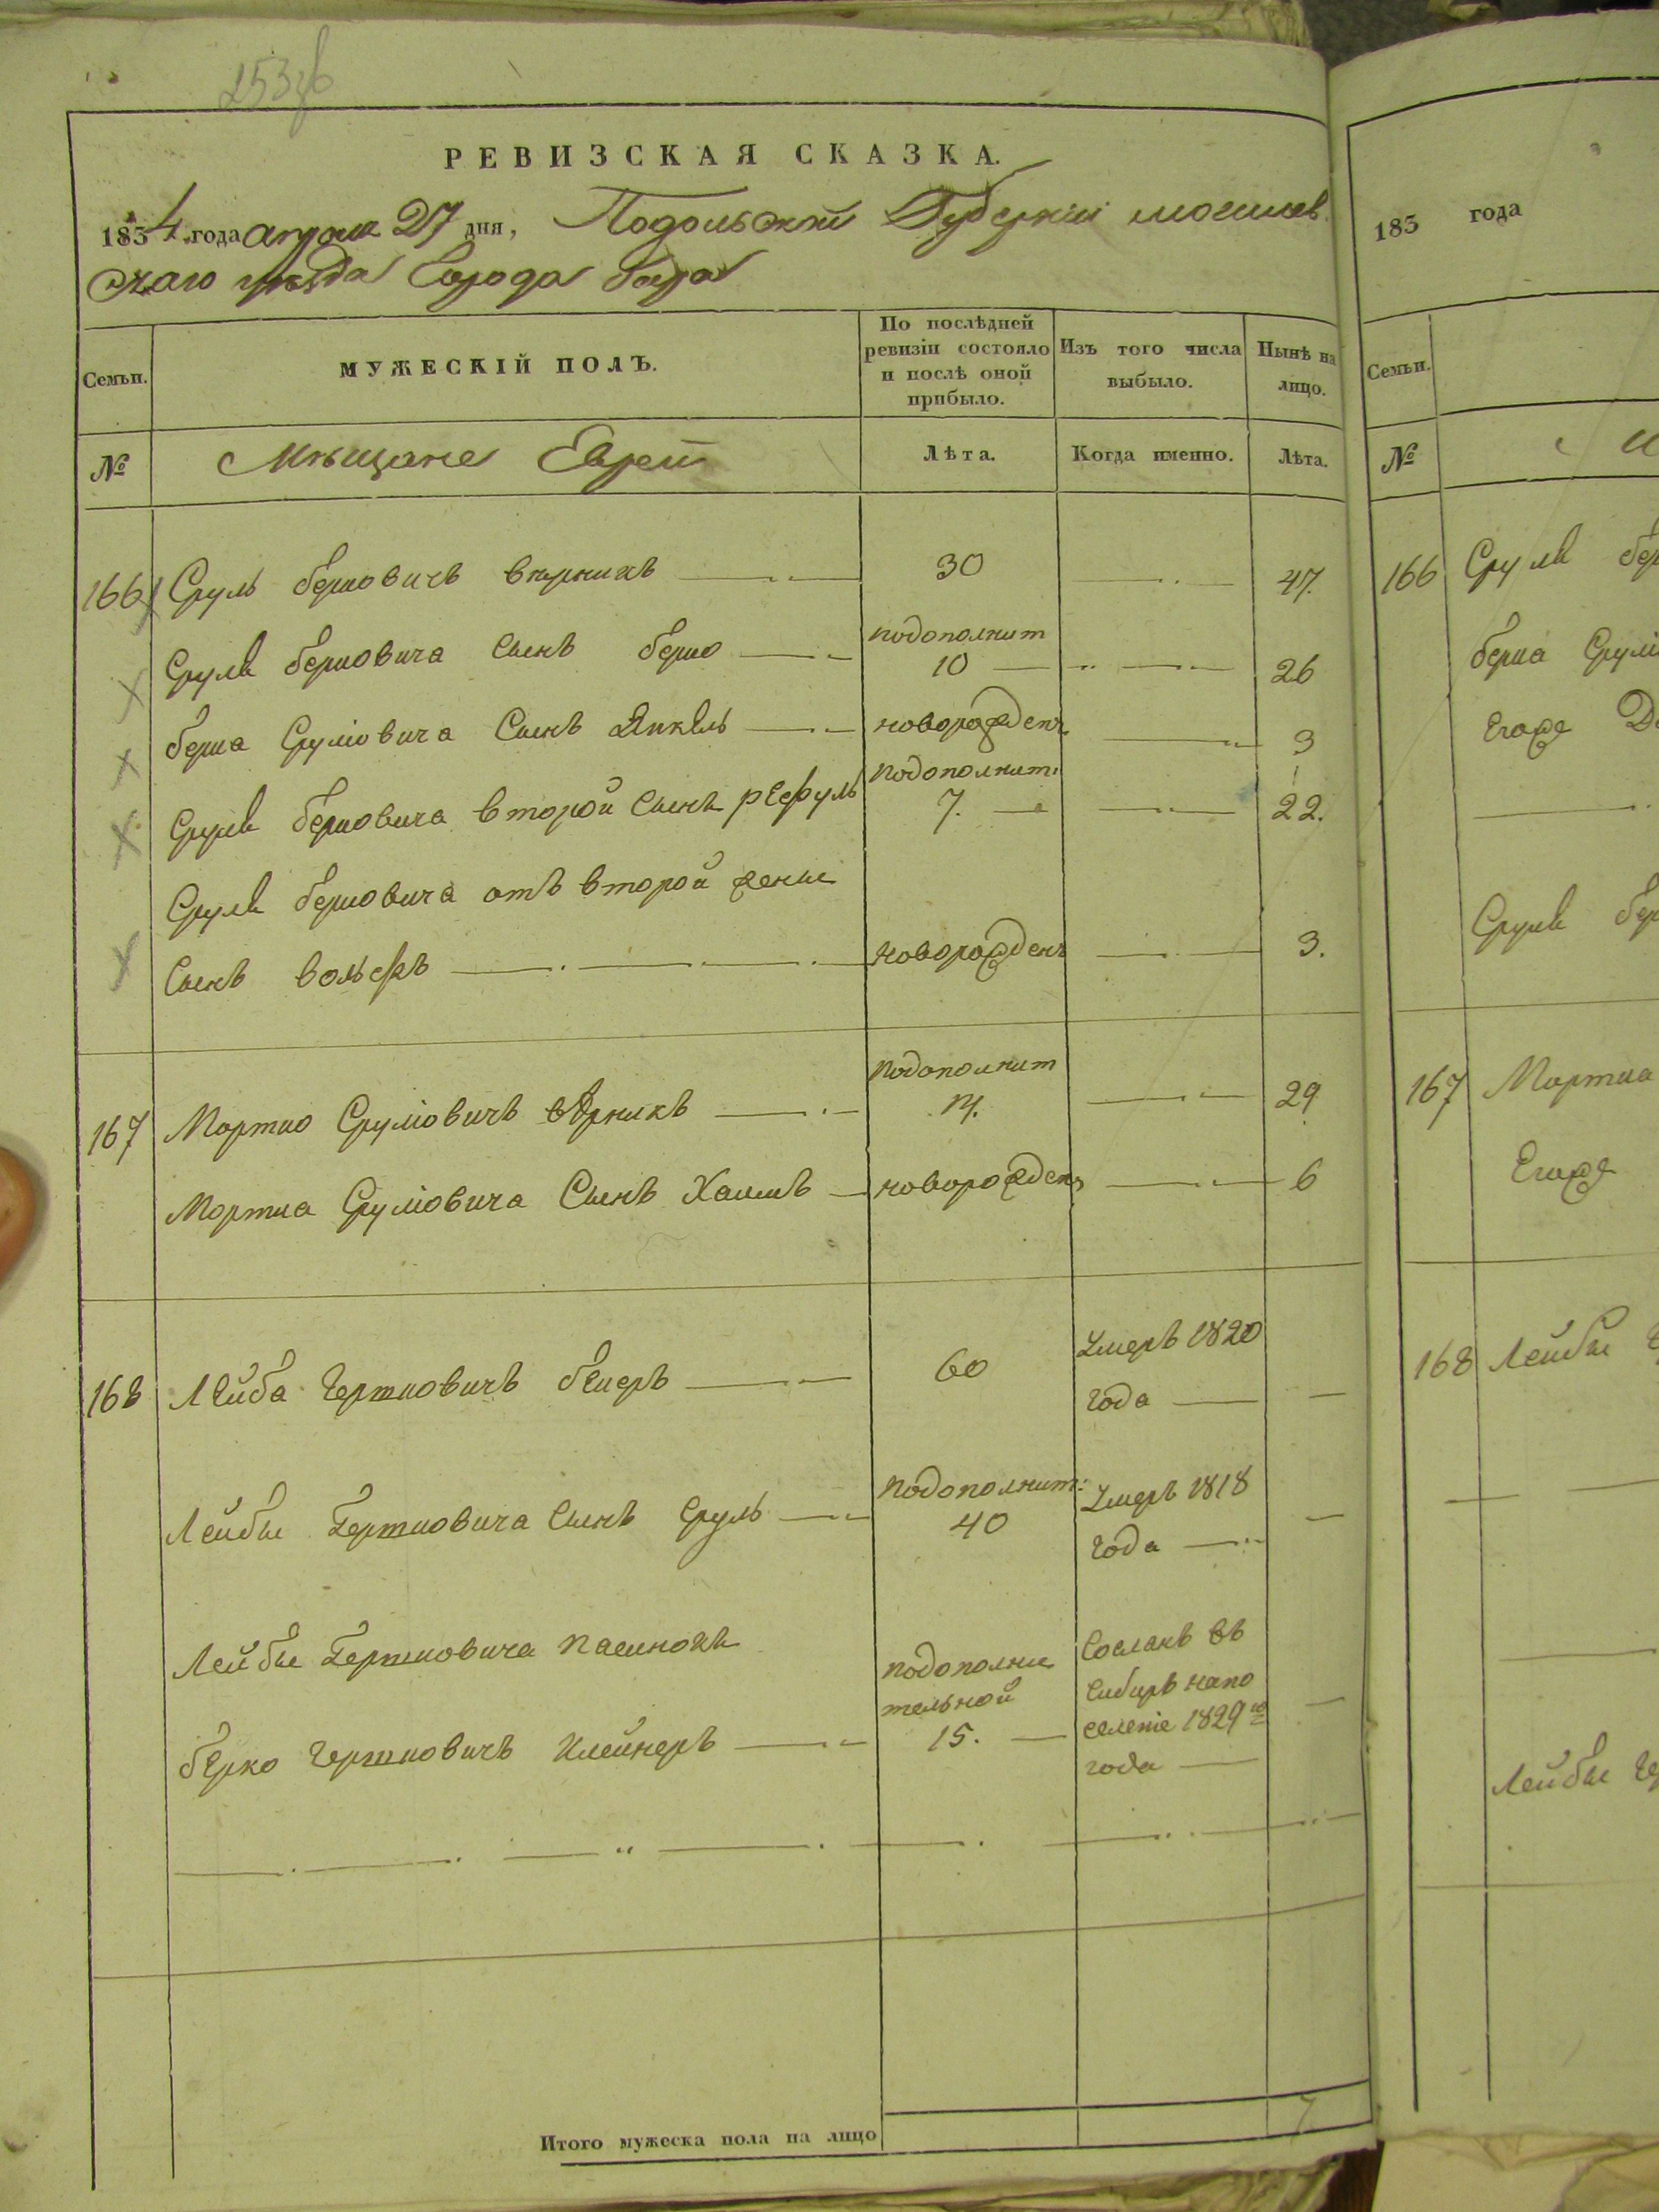 253
РЕВИЗСКАЯ СКАЗКА.
1834 года апреля 27 дня, Подольской Губернии могилев
скаго уѣзда Города бара
Семьи.
МУЖЕСКІЙ ПОЛЪ.
По послѣдней ревизіи состояло и послѣ оной прибыло.
Изъ того числа выбыло.
Нынѣ на лицо.
№ Мѣщане Евреи Лѣта. Когда именно. Лѣта.
166 Сруль берковичъ верникъ 30 47.
Сруля берковича Сынъ берко подополнит 10 26
берка Срулiовича Сынъ Янкель новорожден 3
Сруля берковича второй Сынъ рефуль подополнит: 7. 22.
Сруля берковича отъ второй жены
Сынъ вольфъ новорожденъ 3.
167 Мортко Срулiовичъ вѣрникъ подополнит 14. 29
Мортка Срулiовича Сынъ Хаимъ новорожден 6
168 Лейба гершковичъ бекеръ 60 Умеръ 1820
года
Лейбы Гершковича Сынъ Сруль подополнит: 40 Умеръ 1818
года
Лейбы Гершковича пасинокъ
берко гершковичъ клейнеръ подополни
тельной
15. Сосланъ въ
Сибирь напо
селеніе 1829го
года
Итого мужеска пола на лицо 7
183 года
Семьи.
№
166 Сруля
берка
Егоже
Сруля
167 Мортка
Егоже
168 Лейбы
Лейбы